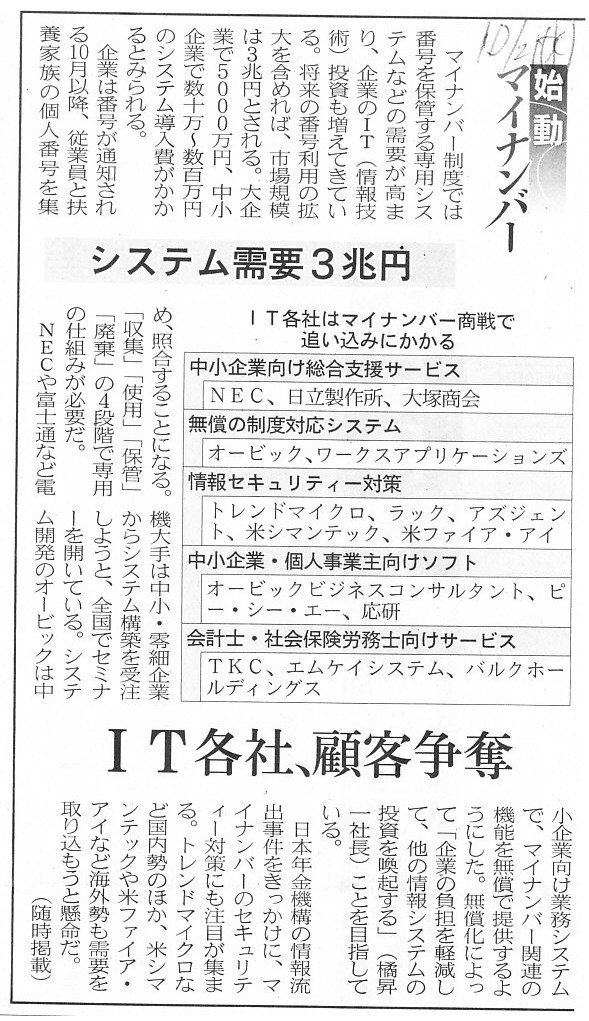 始動
マイナンバー
マイナンバー制度では
番号を保管する専用シス
テムなどの需要が高ま
り、企業のＩＴ（情報技
術）投資も増えてきてい
る。将来の番号利用の拡
大を含めれば、市場規模
は３兆円とされる。大企
業で５０００万円、中小
企業で数十万〜数百万円
のシステム導入費がかか
るとみられる。
企業は番号が通知され
る10月以降、従業員と扶
養家族の個人番号を集
システム需要３兆円
め、照合することになる。
「収集」「使用」「保管」
「廃棄」の４段階で専用
の仕組みが必要だ。
ＮＥＣや富士通など電
機大手は中小・零細企業
からシステム構築を受注
しようと、全国でセミナ
ーを開いている。システ
ム開発のオービックは中
ＩＴ各社はマイナンバー商戦で
追い込みにかかる
中小企業向け総合支援サービス
ＮＥＣ、日立製作所、大塚商会
無償の制度対応システム
オービック、ワークスアプリケーションズ
情報セキュリティー対策
トレンドマイクロ、ラック、アズジェン
ト、米シマンテック、米ファイア・アイ
中小企業・個人事業主向けソフト
オービックビジネスコンサルタント、ピ
ー・シー・エー、応研
会計士・社会保険労務士向けサービス
ＴＫＣ、エムケイシステム、バルクホー
ルディングス
ＩＴ各社、顧客争奪
小企業向け業務システム
で、マイナンバー関連の
機能を無償で提供するよ
うにした。無償化によっ
て「企業の負担を軽減し
て、他の情報システムの
投資を喚起する」（橘昇
一社長）ことを目指して
いる。
日本年金機構の情報流
出事件をきっかけに、マ
イナンバーのセキュリテ
ィー対策にも注目が集ま
る。トレンドマイクロな
ど国内勢のほか、米シマ
ンテックや米ファイア・
アイなど海外勢も需要を
取り込もうと懸命だ。
（随時掲載）